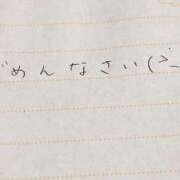 めんなさい(´_